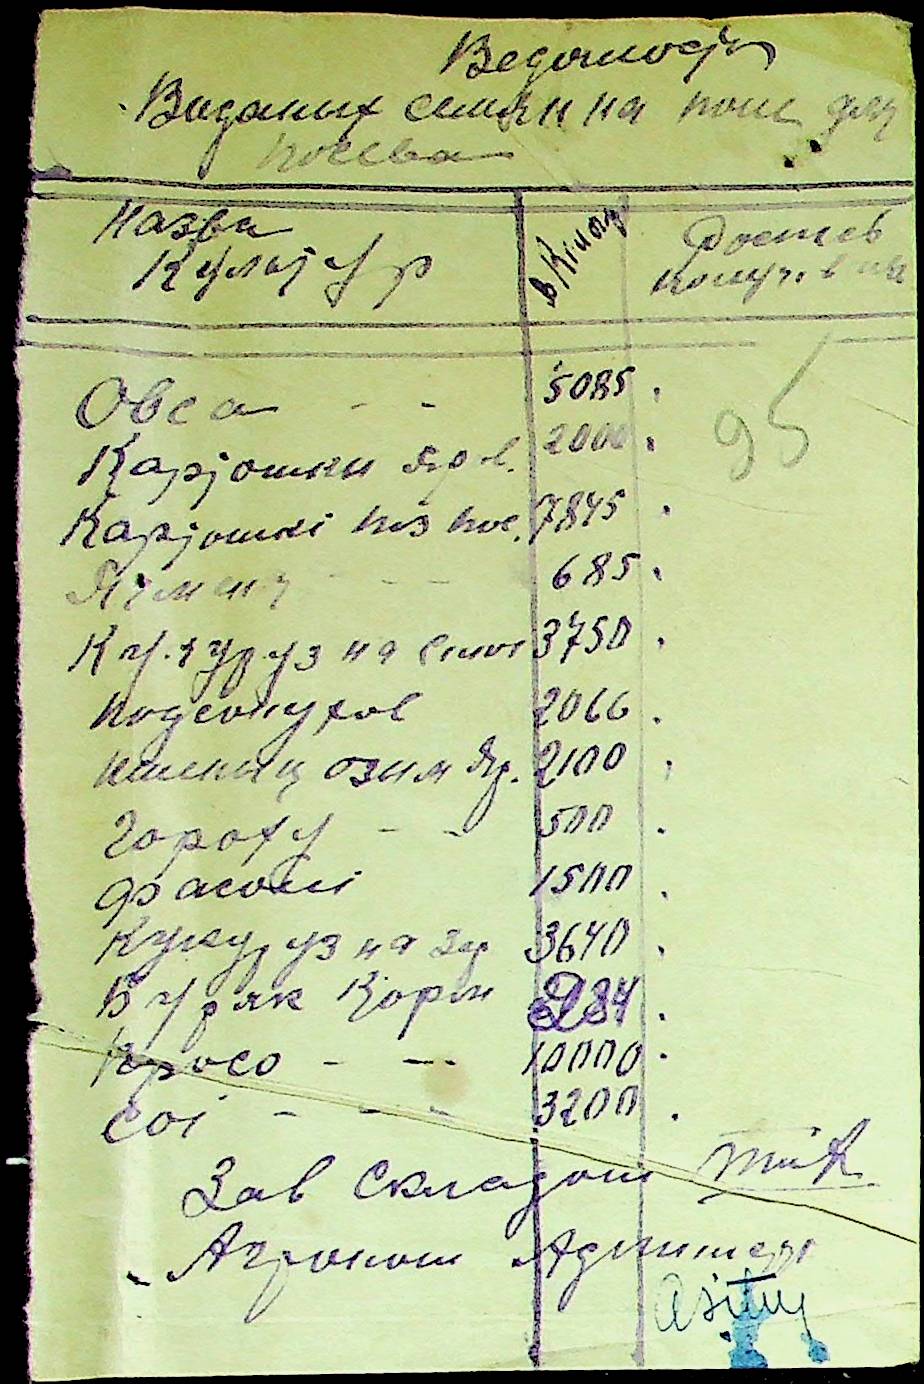 Ведомость
Виданих семян на поле для
посева
Назва
Культур
в Кілогр
Роспись
получ. в
Овса - - 5085.
95
Картошки яров. 2000.
Картошкі піз пос. 7845.
Ячменя - - - 685.
Кукуруз на силос 3750.
Подсолнухов 2066.
пшениц озим яр. 2100.
Гороху - - 500.
Фасолі 1500.
Кукуруз на зер 3640.
Буряк Корм 284.
Просо - - - 10000.
Сої - - - 3200.
Зав складом
Агроном